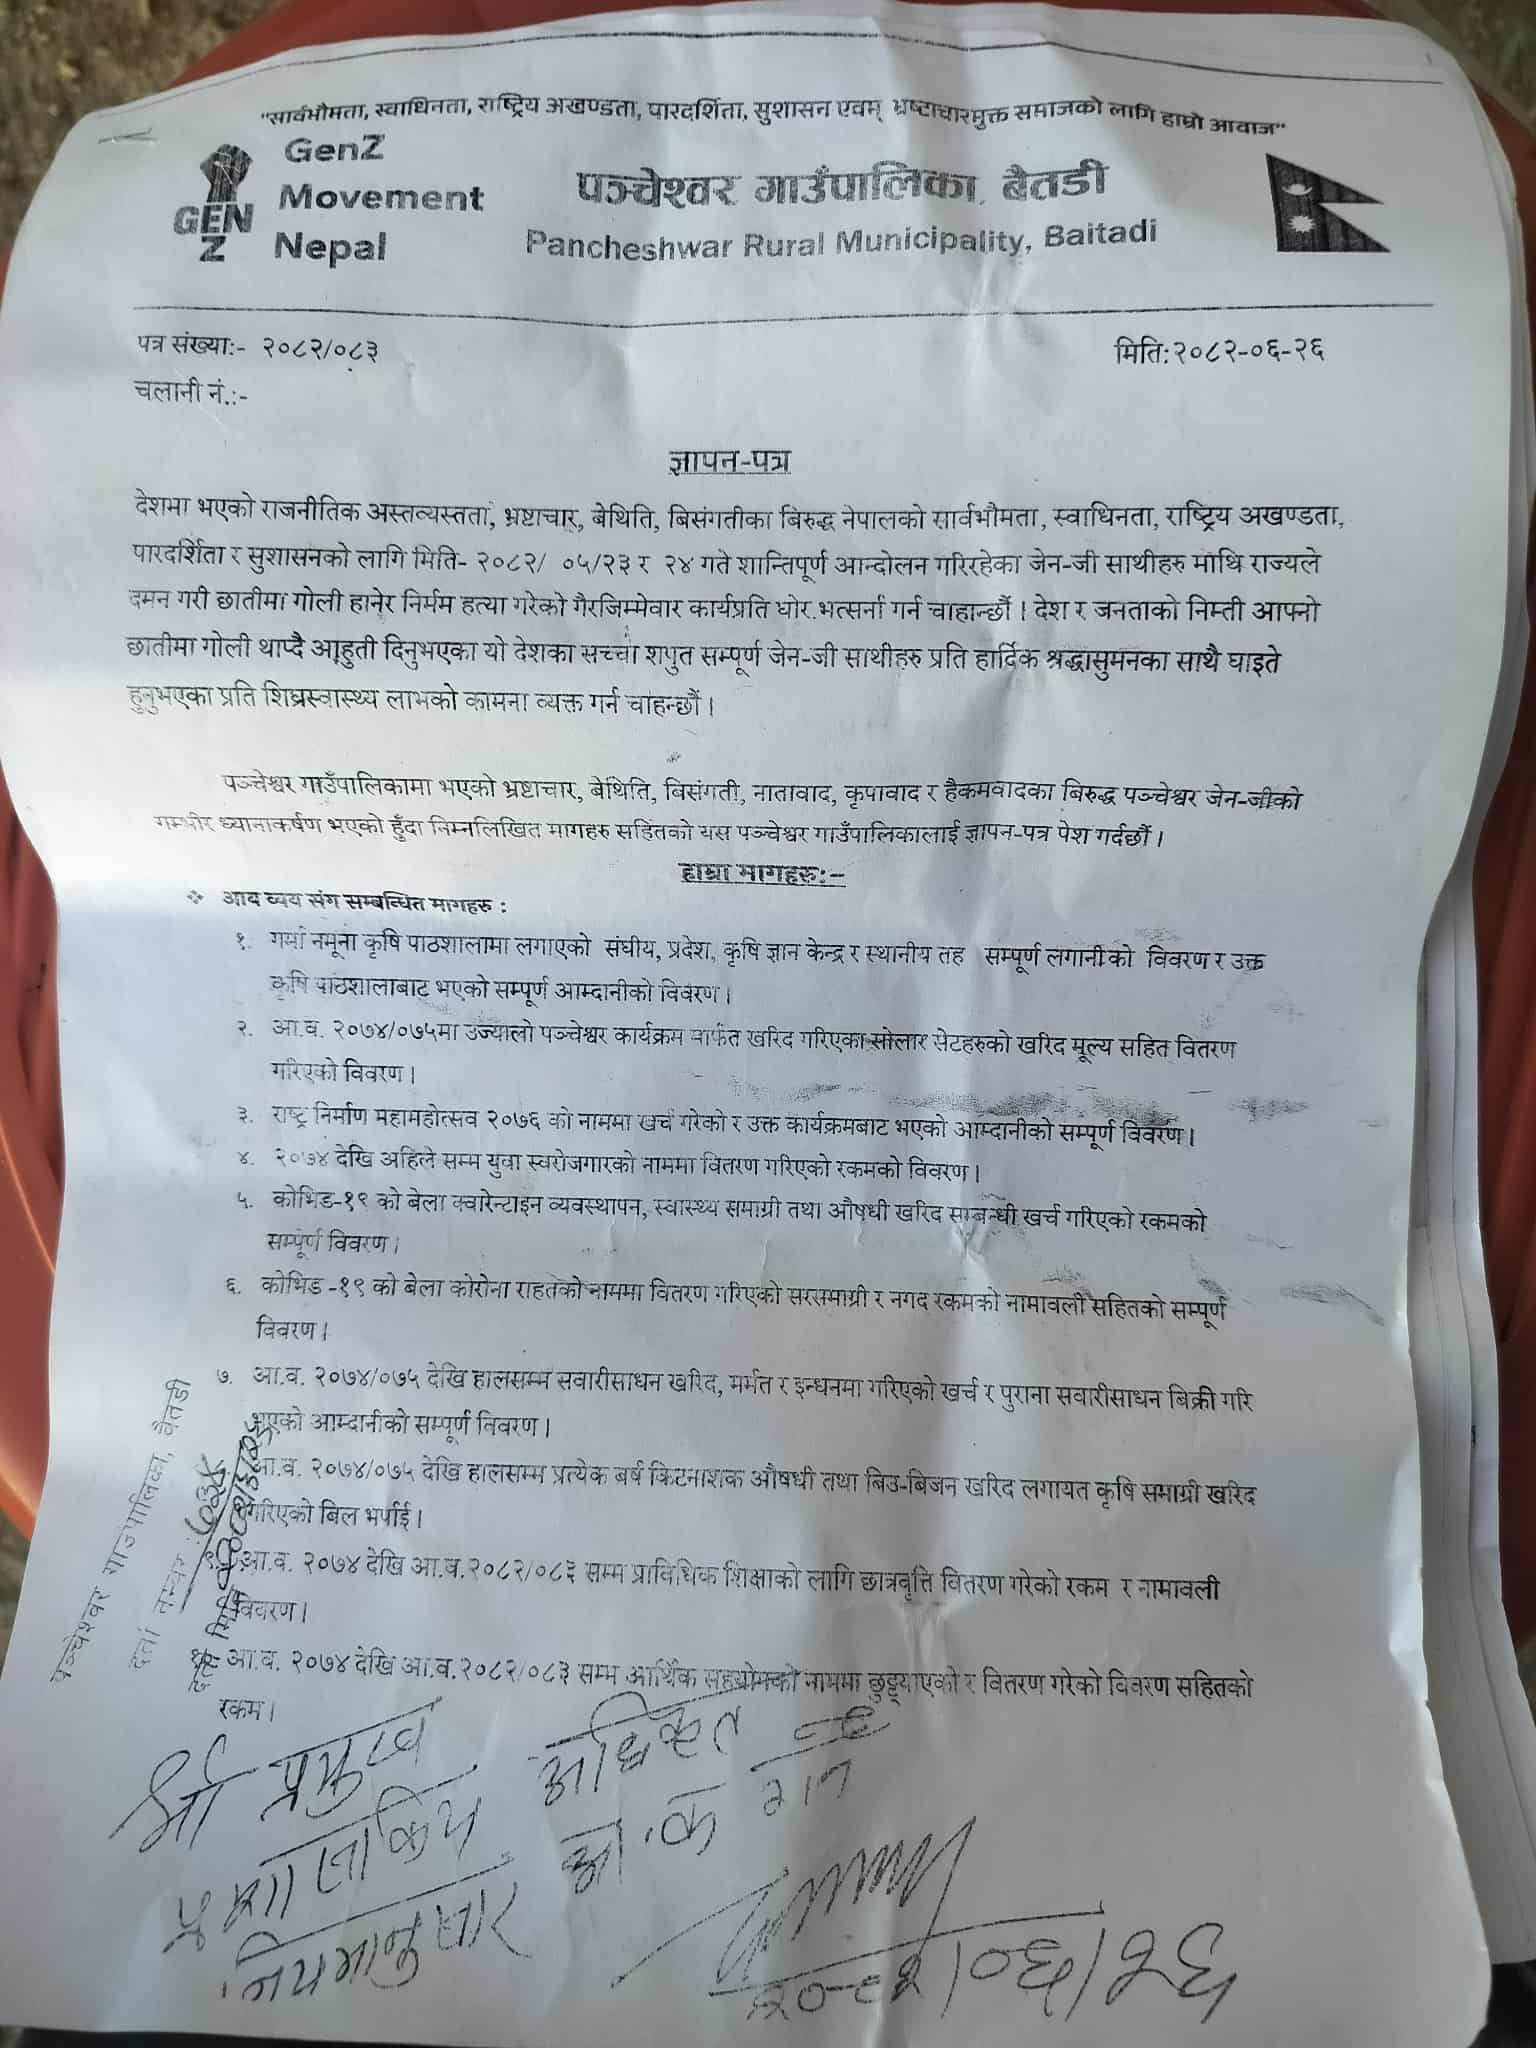 "सार्वभौमता, स्वाधिनता, राष्ट्रिय अखण्डता, पारदर्शिता, सुशासन एवम् भ्रष्टाचारमुक्त समाजको लागि हाम्रो आवाज"
GEN Z
GenZ
Movement
Nepal
पञ्चेश्वर गाउँपालिका, बैतडी
Pancheshwar Rural Municipality, Baitadi
पत्र संख्या:- २०८२/०८३
मिति:२०८२-०६-२६
चलानी नं.:-
ज्ञापन-पत्र
देशमा भएको राजनीतिक अस्तव्यस्तता, भ्रष्टाचार, बेथिति, बिसंगतीका बिरुद्ध नेपालको सार्वभौमता, स्वाधिनता, राष्ट्रिय अखण्डता,
पारदर्शिता र सुशासनको लागि मिति- २०८२/ ०५/२३ र २४ गते शान्तिपूर्ण आन्दोलन गरिरहेका जेन-जी साथीहरु माथि राज्यले
दमन गरी छातीमा गोली हानेर निर्मम हत्या गरेको गैरजिम्मेवार कार्यप्रति घोर भत्सर्ना गर्न चाहान्छौं । देश र जनताको निम्ती आफ्नो
छातीमा गोली थाप्दै आहुती दिनुभएका यो देशका सच्चा शपुत सम्पूर्ण जेन-जी साथीहरु प्रति हार्दिक श्रद्धासुमनका साथै घाइते
हुनुभएका प्रति शिघ्रस्वास्थ्य लाभको कामना व्यक्त गर्न चाहन्छौं ।
पञ्चेश्वर गाउँपालिकामा भएको भ्रष्टाचार, बेथिति, बिसंगती, नातावाद, कृपावाद र हैकमवादका बिरुद्ध पञ्चेश्वर जेन-जीको
गम्भीर ध्यानाकर्षण भएको हुँदा निम्नलिखित मागहरु सहितको यस पञ्चेश्वर गाउँपालिकालाई ज्ञापन-पत्र पेश गर्दछौं ।
हाम्रा मागहरु:-
❖ आय व्यय संग सम्बन्धित मागहरु :
१. गर्मा नमूना कृषि पाठशालामा लगाएको संघीय, प्रदेश, कृषि ज्ञान केन्द्र र स्थानीय तह सम्पूर्ण लगानी को विवरण र उक्त
कृषि पाठशालाबाट भएको सम्पूर्ण आम्दानीको विवरण ।
२. आ.व. २०७४/०७५मा उज्यालो पञ्चेश्वर कार्यक्रम मार्फत खरिद गरिएका सोलार सेटहरुको खरिद मूल्य सहित वितरण
गरिएको विवरण ।
३. राष्ट्र निर्माण महामहोत्सव २०७६ को नाममा खर्च गरेको र उक्त कार्यक्रमबाट भएको आम्दानीको सम्पूर्ण विवरण ।
४. २०७४ देखि अहिले सम्म युवा स्वरोजगारको नाममा वितरण गरिएको रकमको विवरण ।
५. कोभिड-१९ को बेला क्वारेन्टाइन व्यवस्थापन, स्वास्थ्य समाग्री तथा औषधी खरिद सम्बन्धी खर्च गरिएको रकमको
सम्पूर्ण विवरण ।
६. कोभिड -१९ को बेला कोरोना राहतको नाममा वितरण गरिएको सरसमाग्री र नगद रकमको नामावली सहितको सम्पूर्ण
विवरण ।
७. आ.व. २०७४/०७५ देखि हालसम्म सवारीसाधन खरिद, मर्मत र इन्धनमा गरिएको खर्च र पुराना सवारीसाधन बिक्री गरि
भएको आम्दानीको सम्पूर्ण विवरण ।
आ.व. २०७४/०७५ देखि हालसम्म प्रत्येक बर्ष किटनाशक औषधी तथा बिउ-बिजन खरिद लगायत कृषि समाग्री खरिद
गरिएको बिल भर्पाई ।
आ.व. २०७४ देखि आ.व.२०८२/०८३ सम्म प्राविधिक शिक्षाको लागि छात्रवृत्ति वितरण गरेको रकम र नामावली
विवरण ।
आ.व. २०७४ देखि आ.व.२०८२/०८३ सम्म आर्थिक सहयोगको नाममा छुट्ट्याएको र वितरण गरेको विवरण सहितको
रकम ।
पञ्चेश्वर गाउँपालिका, बैतडी
दर्ता नम्बर :
दर्ता मिति
श्री प्रमुख
प्रशासकिय अधिकृत
नियमानुसार आ.क
२०८२/०६/२६